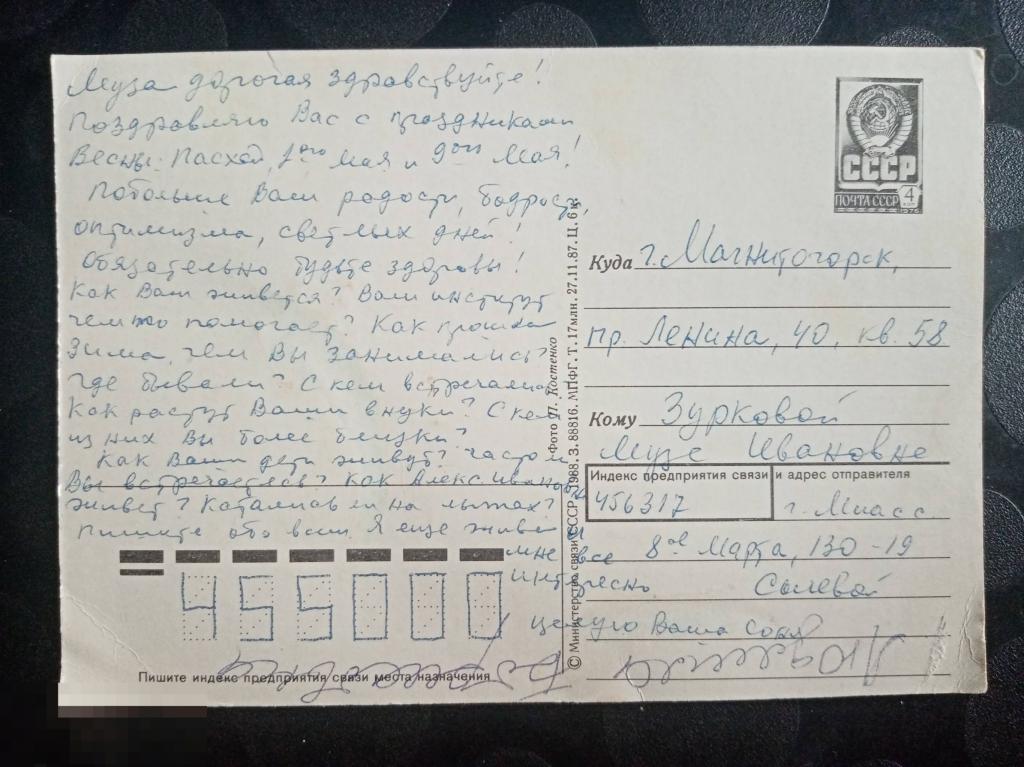 Муза дорогая здравствуйте!
Поздравляю Вас с праздниками
Весны: Пасхой, 1ого Мая и 9ого Мая!
Побольше Вам радости, бодрости,
оптимизма, светлых дней!
Обязательно будьте здоровы!
Как Вам живется? Ваш институт
чем то помогает? Как прошла
Зима, чем Вы занимались?
Где бывали? С кем встречались
Как растут Ваши внуки? С кем
из них Вы более близки?
Как Ваши дети живут? Часто ли
Вы встречаетесь? Как Алекс. Ивановна
живет? Катались ли на лыжах?
Пишите обо всем. Я еще жива и
мне все
интересно.
Целую Ваша Соня
455000
Пишите индекс предприятия связи места назначения
Фото П. Костенко
© Министерство связи СССР. 1988. З. 88816. МПФГ. Т. 17 млн. 27.11.87. Ц. 6 к.
СССР
ПОЧТА СССР
4
КОП
1976
Куда г. Магнитогорск,
пр. Ленина, 40, кв. 58
Кому Зурковой
Музе Ивановне
Индекс предприятия связи и адрес отправителя
456317
г. Миасс
8ое Марта, 130-19
Солевой